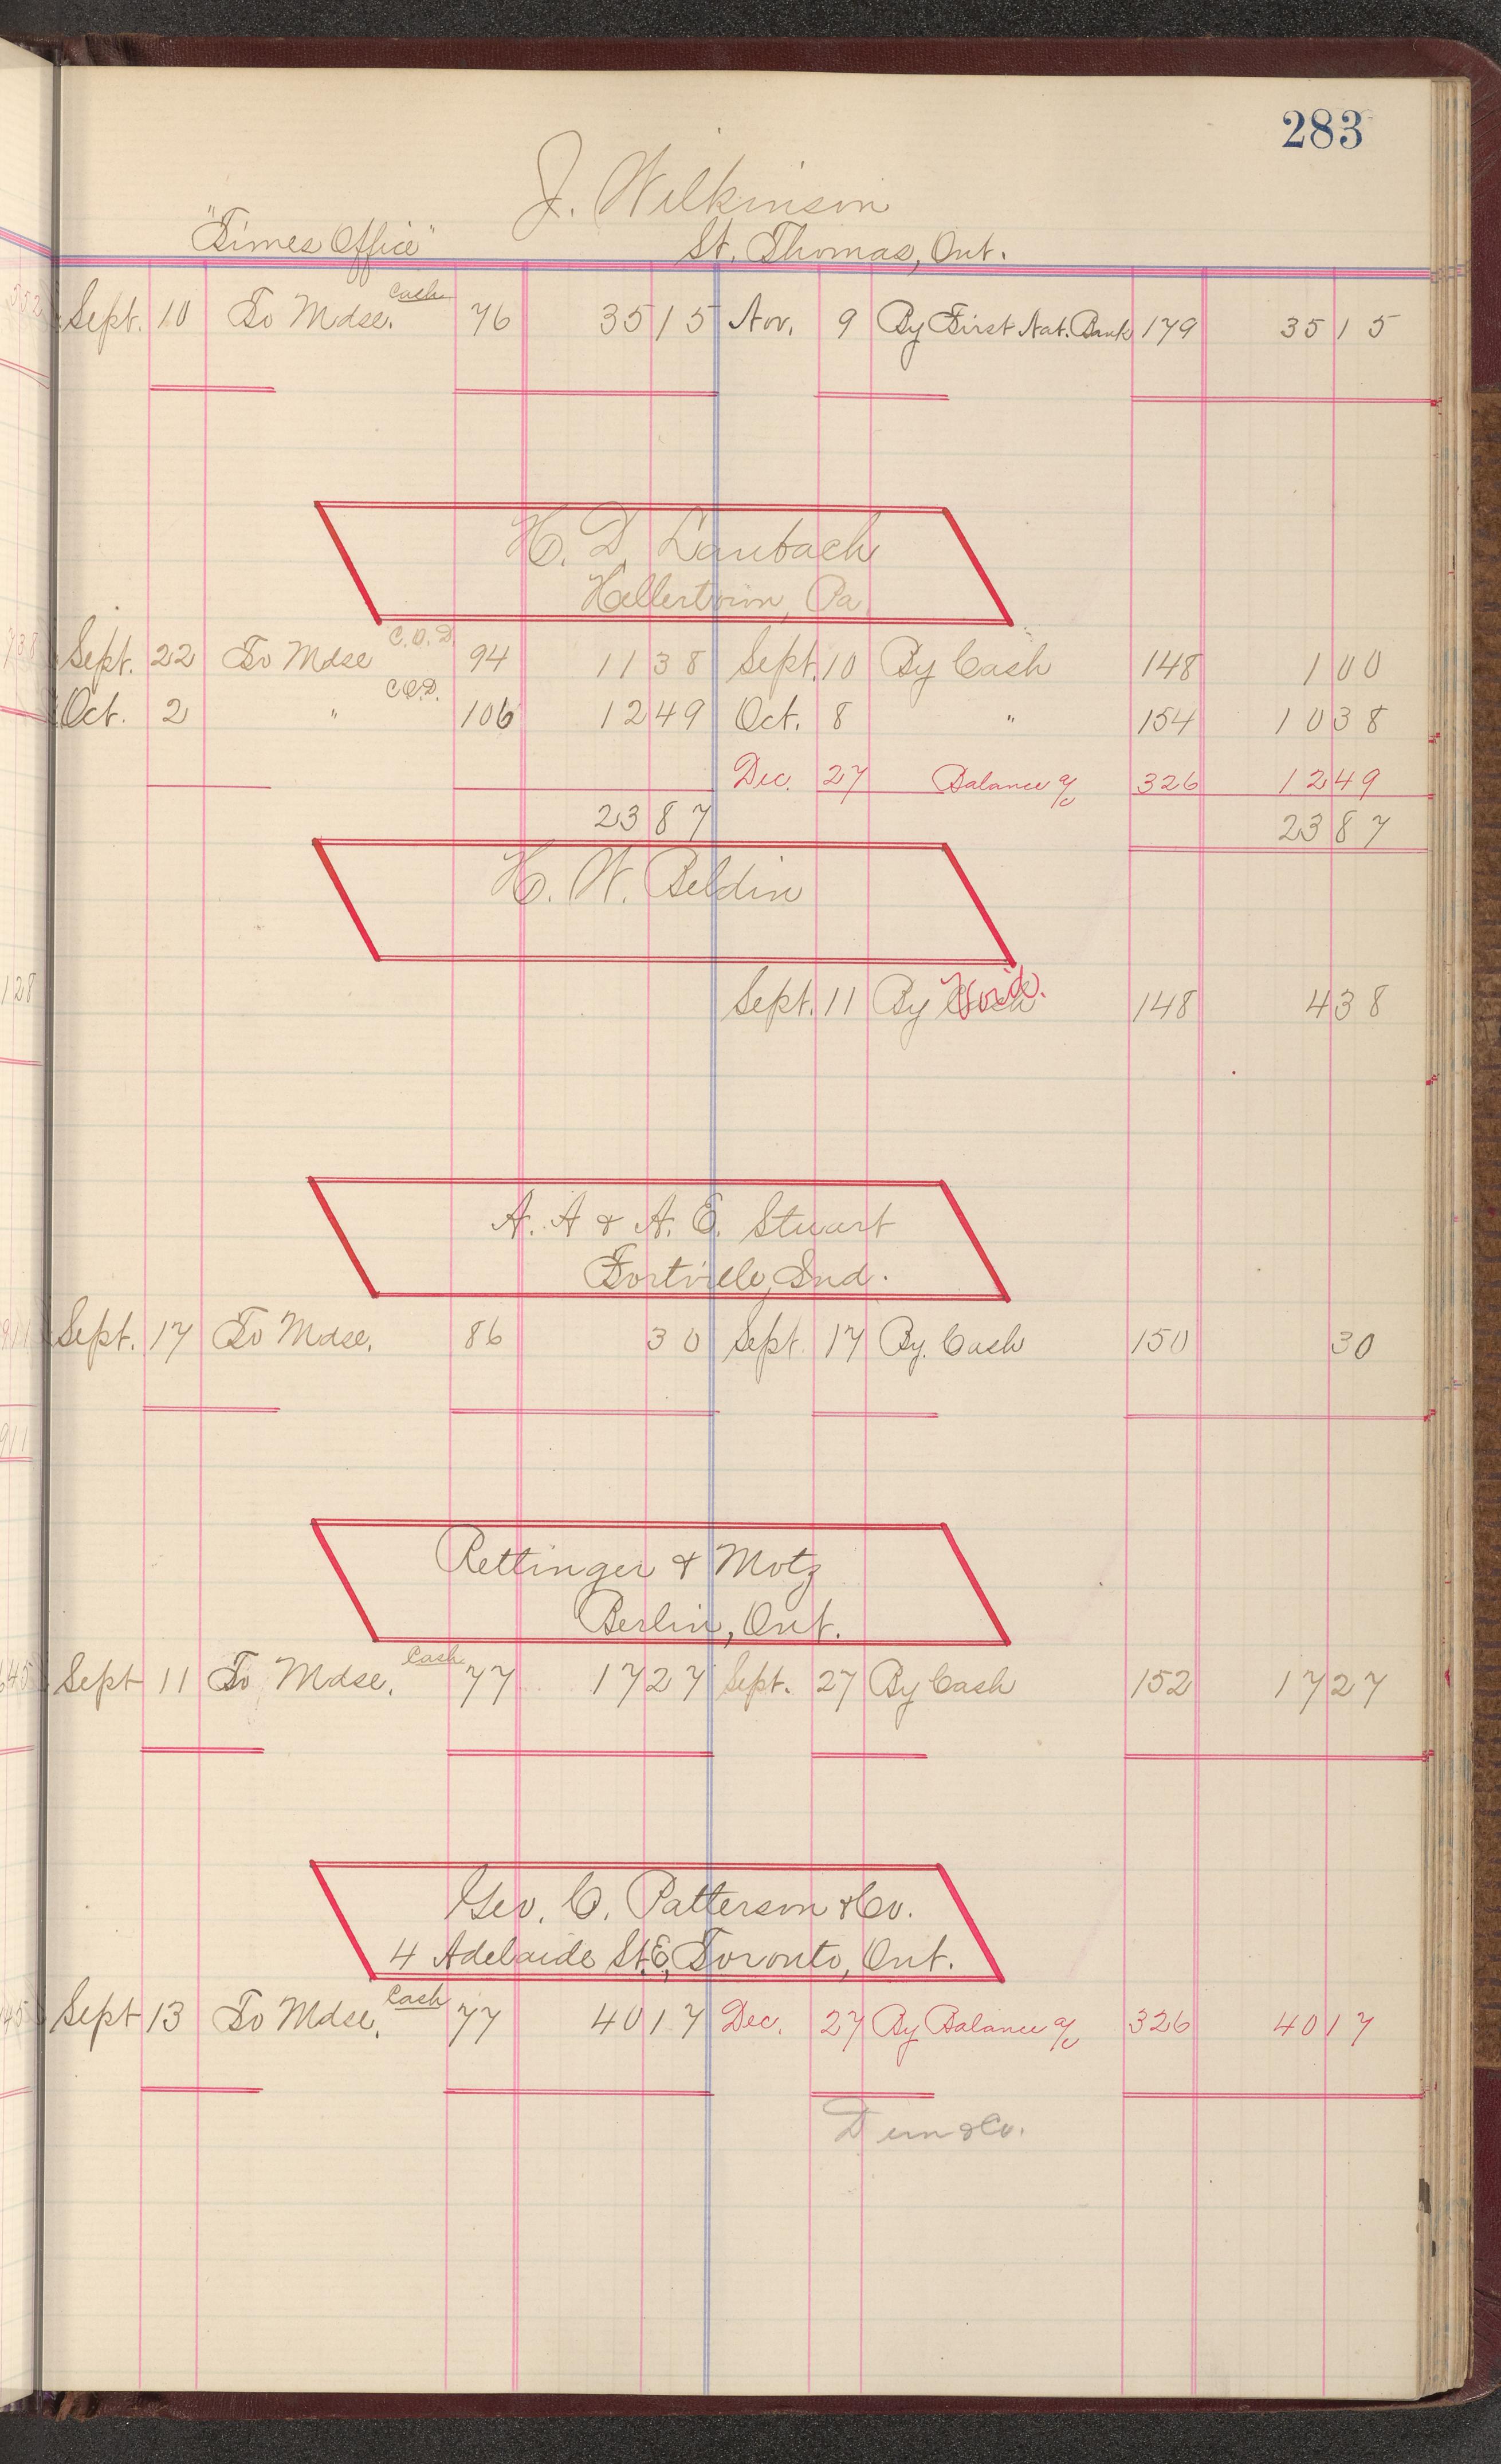 283
J. Wilkinson
"Times Office" St. Thomas, Ont.
Sept. 10 To Mdse. Cash 76 35 15 Nov. 9 By First Nat. Bank 179 35 15
H. D. Laubach
Hellertown, Pa.
Sept. 22 To Mdse C.O.D. 94 11 38 Sept. 10 By Cash 148 1 00
Oct. 2 " C.O.D. 106 12 49 Oct. 8 " 154 10 38
Dec. 27 Balance a/c 326 12 49
23 87 23 87
H. W. Beldin
Sept. 11 By Cash Void. 148 4 38
A. A & A. E. Stuart
Fortville, Ind.
Sept. 17 To Mdse. 86 30 Sept. 17 By Cash 150 30
Rettinger & Motz
Berlin, Ont.
Sept 11 To Mdse. Cash 77 17 27 Sept. 27 By Cash 152 17 27
Geo. C. Patterson & Co.
4 Adelaide St. E. Toronto, Ont.
Sept 13 To Mdse. Cash 77 40 17 Dec. 27 By Balance a/c 326 40 17
& Co.